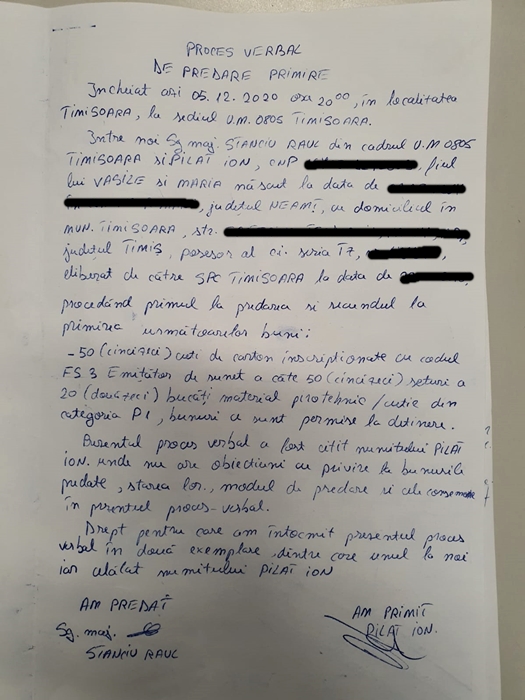 PROCES VERBAL
DE PREDARE PRIMIRE
Încheiat azi 05.12.2020 ora 20⁰⁰, în localitatea
TIMISOARA, la sediul U.M. 0805 TIMISOARA.
Între noi Sg. maj. STANCIU RAUL din cadrul U.M 0805
TIMISOARA si PILAT ION, CNP , fiul
lui VASILE si MARIA născut la data de
, județul NEAMȚ, cu domiciliul în
MUN. TIMISOARA, str.
județul TIMIS, posesor al ci. seria TZ,
eliberat de către SPC TIMISOARA la data de
procedând primul la predarea si secundul la
primirea următoarelor bunuri:
- 50 (cincizeci) cutii de carton inscripționate cu codul
FS 3 Emitător de sunet a câte 50 (cincizeci) seturi a
20 (douăzeci) bucăți material pirotehnic / cutie din
categoria P1, bunuri ce sunt permise la detinere.
Prezentul proces verbal a fost citit numitului PILAT
ION. unde nu are obiectiuni cu privire la bunurile
predate, starea lor, modul de predare si cele consemnate
în prezentul proces-verbal.
Drept pentru care am întocmit prezentul proces
verbal în două exemplare, dintre care unul la noi
iar celălat numitului PILAT ION
AM PREDAT
Sg. maj.
STANCIU RAUL
AM PRIMIT
PILAT ION.